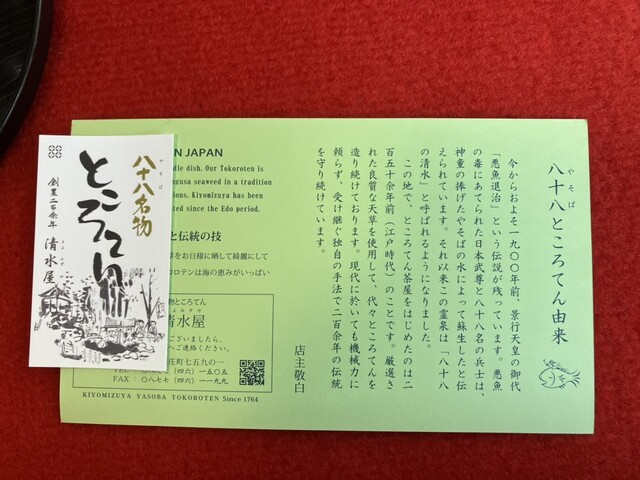 八十八名物
やそば
ところてん
創業二百余年 清水屋
八十八ところてん由来
やそば
今からおよそ一九〇〇年前、景行天皇の御代
「悪魚退治」という伝説が残っています。悪魚
の毒にあてられた日本武尊と八十八名の兵士は、
神童の捧げたやそばの水によって蘇生したと伝
えられています。それ以来この霊泉は「八十八
の清水」と呼ばれるようになりました。
この地で、ところてん茶屋をはじめたのは二
百五十余年前（江戸時代）のことです。厳選さ
れた良質な天草を使用して、代々ところてんを
造り続けております。現代に於いても機械力に
頼らず、受け継ぐ独自の手法で二百余年の伝統
を守り続けています。
店主敬白
N JAPAN
dle dish. Our Tokoroten is
gusa seaweed in a tradition
ions. Kiyomizuya has been
ted since the Edo period.
と伝統の技
をお日様に晒して綺麗にして
コロテンは海の恵みがいっぱい
物ところてん
清水屋
ございましたら、
へご連絡ください。
庄町七五九の一
TEL 〇八七七（四六）一五〇五
FAX：〇八七七（四六）一一九九
KIYOMIZUYA YASOBA TOKOROTEN Since 1764